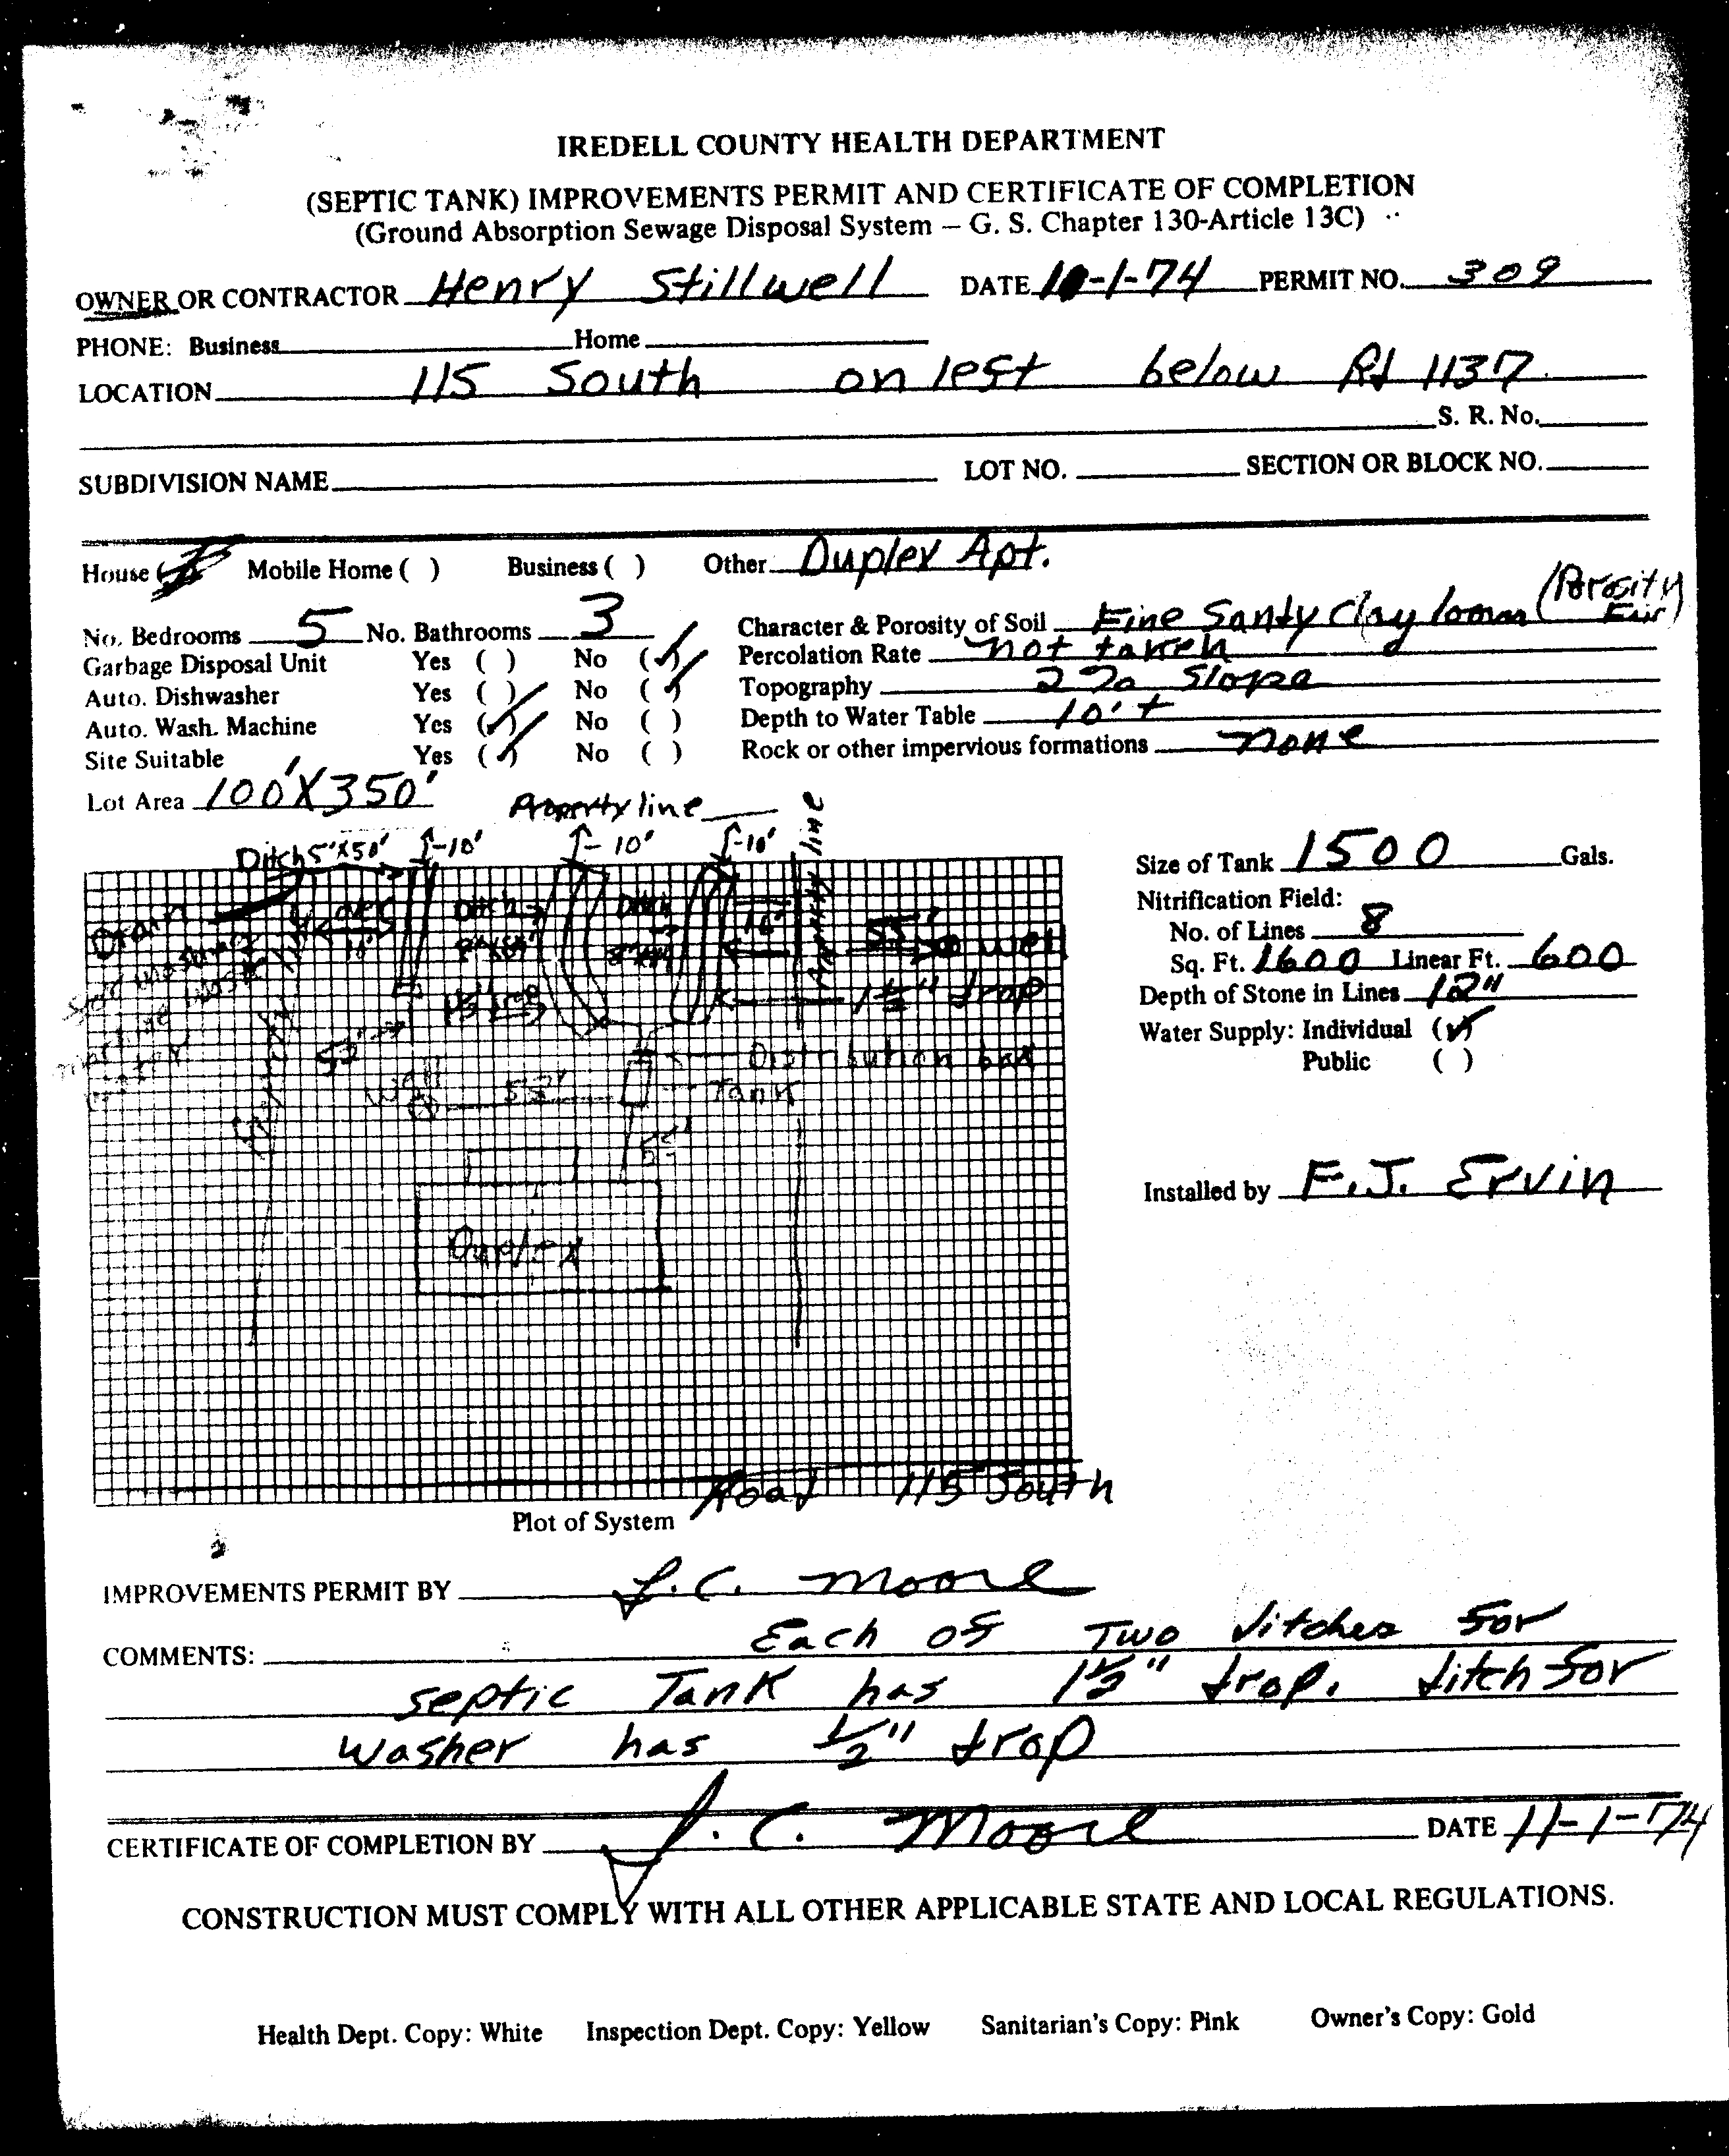 IREDELL COUNTY HEALTH DEPARTMENT
(SEPTIC TANK) IMPROVEMENTS PERMIT AND CERTIFICATE OF COMPLETION
(Ground Absorption Sewage Disposal System – G. S. Chapter 130-Article 13C)
OWNER OR CONTRACTOR Henry Stillwell DATE 10-1-74 PERMIT NO. 309
PHONE: Business Home
LOCATION 115 South on left below Rd 1137
S. R. No.
SUBDIVISION NAME LOT NO. SECTION OR BLOCK NO.
House ( ) Mobile Home ( ) Business ( ) Other Duplex Apt.
No. Bedrooms 5 No. Bathrooms 3 Character & Porosity of Soil Fine Sandy Clay loam (Porosity Fair)
Garbage Disposal Unit Yes ( ) No (✓) Percolation Rate not taken
Auto. Dishwasher Yes ( ) No (✓) Topography 2% Slope
Auto. Wash. Machine Yes (✓) No ( ) Depth to Water Table 10'+
Site Suitable Yes (✓) No ( ) Rock or other impervious formations none
Lot Area 100'X350'
Property line
line
Ditch 5'X50' 10' 10' 10'
Size of Tank 1500 Gals.
Nitrification Field:
No. of Lines 8
Sq. Ft. 1600 Linear Ft. 600
Depth of Stone in Lines 12"
Water Supply: Individual (✓)
Public ( )
Drain over Ditch Ditch 10' Property
10' 55' well
1½" drop 1½" drop
55' Distribution box
Well 55' Tank
55'
Property line
Duplex
Installed by F.J. Ervin
Road 115 South
Plot of System
IMPROVEMENTS PERMIT BY J.C. Moore
COMMENTS: Each of Two ditches for
septic Tank has 1½" drop. ditch for
washer has ½" drop
CERTIFICATE OF COMPLETION BY J.C. Moore DATE 11-1-74
CONSTRUCTION MUST COMPLY WITH ALL OTHER APPLICABLE STATE AND LOCAL REGULATIONS.
Health Dept. Copy: White Inspection Dept. Copy: Yellow Sanitarian's Copy: Pink Owner's Copy: Gold